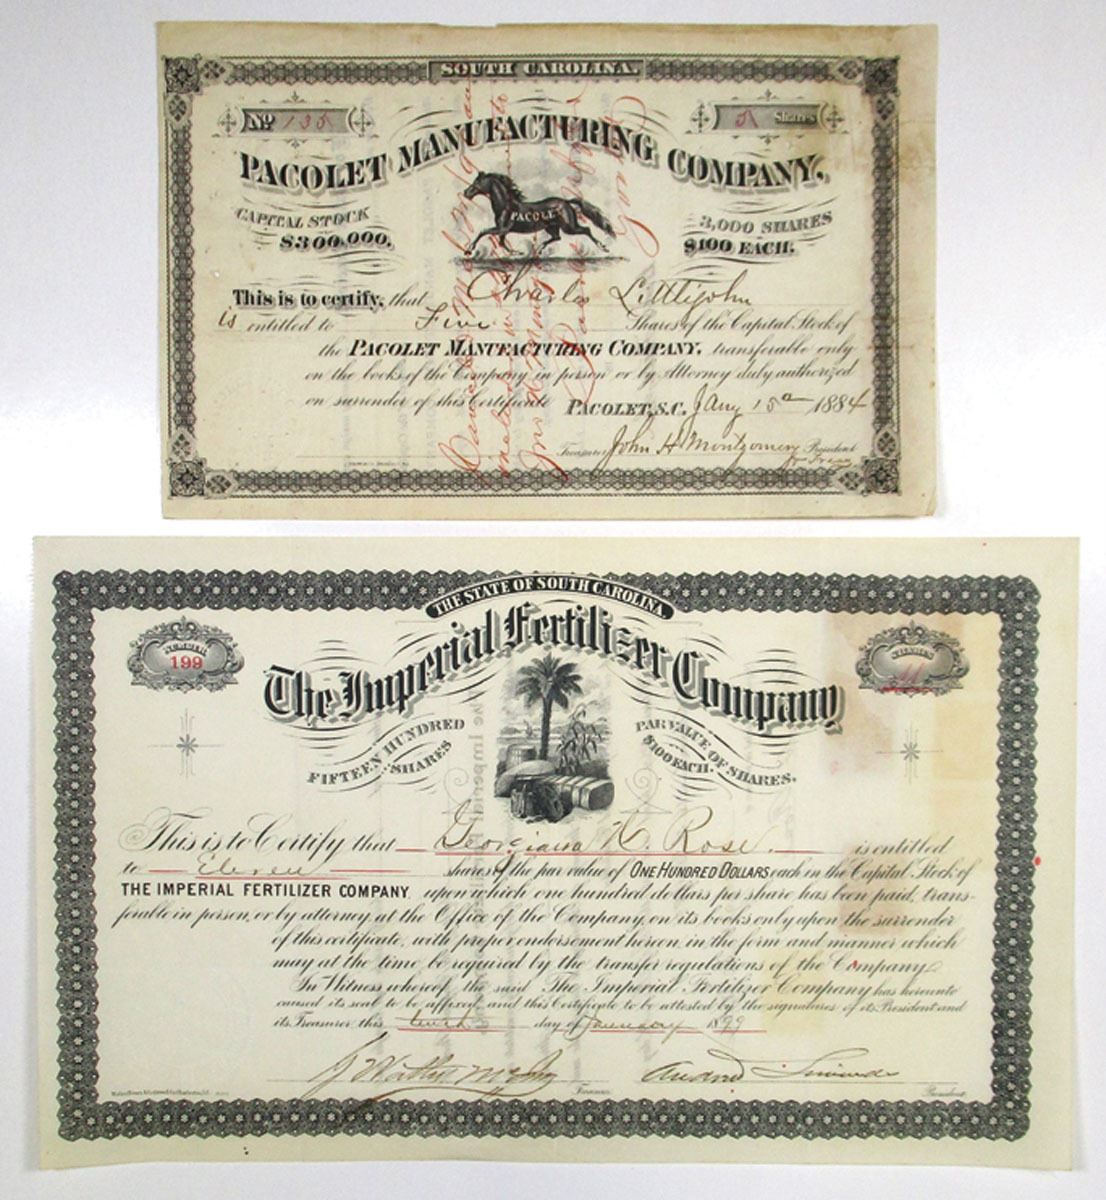 SOUTH CAROLINA.
No 135
5 Shares
PACOLET MANUFACTURING COMPANY.
CAPITAL STOCK
$300.000.
PACOLET
3,000 SHARES
$100 EACH.
This is to certify, that Charles Littlejohn
is entitled to Five Shares of the Capital Stock of
the PACOLET MANUFACTURING COMPANY, transferable only
on the books of the Company in person or by Attorney duly authorized
on surrender of this Certificate PACOLET, S.C. Jany 15th 1884
Treasurer John H Montgomery President
THE STATE OF SOUTH CAROLINA
NUMBER
199
SHARES
11
The Imperial Fertilizer Company
FIFTEEN HUNDRED
SHARES
PAR VALUE OF SHARES,
$100 EACH.
This is to Certify that Georgiana H. Rose. is entitled
to Eleven shares of the par value of ONE HUNDRED DOLLARS each in the Capital Stock of
THE IMPERIAL FERTILIZER COMPANY, upon which one hundred dollars per share has been paid, trans-
ferable in person, or by attorney, at the Office of the Company, on its books only upon the surrender
of this certificate, with proper endorsement hereon in the form and manner which
may at the time be required by the transfer regulations of the Company.
In Witness whereof, the said The Imperial Fertilizer Company has hereunto
caused its seal to be affixed, and this Certificate to be attested by the signatures of its President and
its Treasurer this tenth day of January 1899
Treasurer.
President.